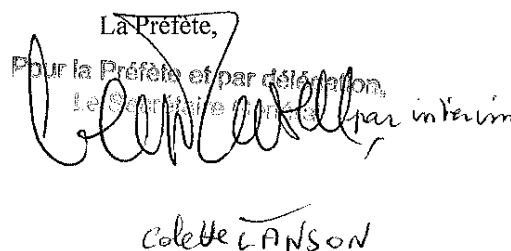 La Préfète,
Pour la Préfète et par délégation,
Le Secrétaire Général
par intérim
Colette LANSON